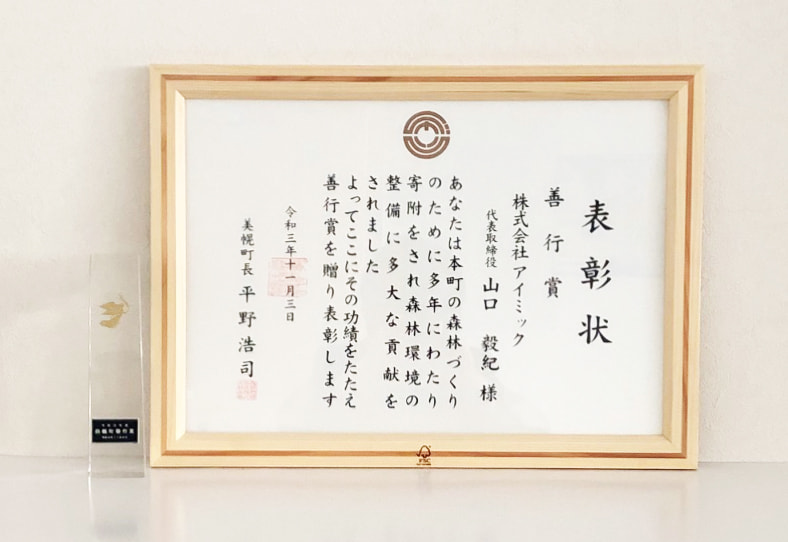 表彰状
善行賞
株式会社アイミック
代表取締役 山口 毅紀 様
あなたは本町の森林づくり
のために多年にわたり
寄附をされ森林環境の
整備に多大な貢献を
されました
よってここにその功績をたたえ
善行賞を贈り表彰します
令和三年十一月三日
美幌町長 平野浩司
FSC